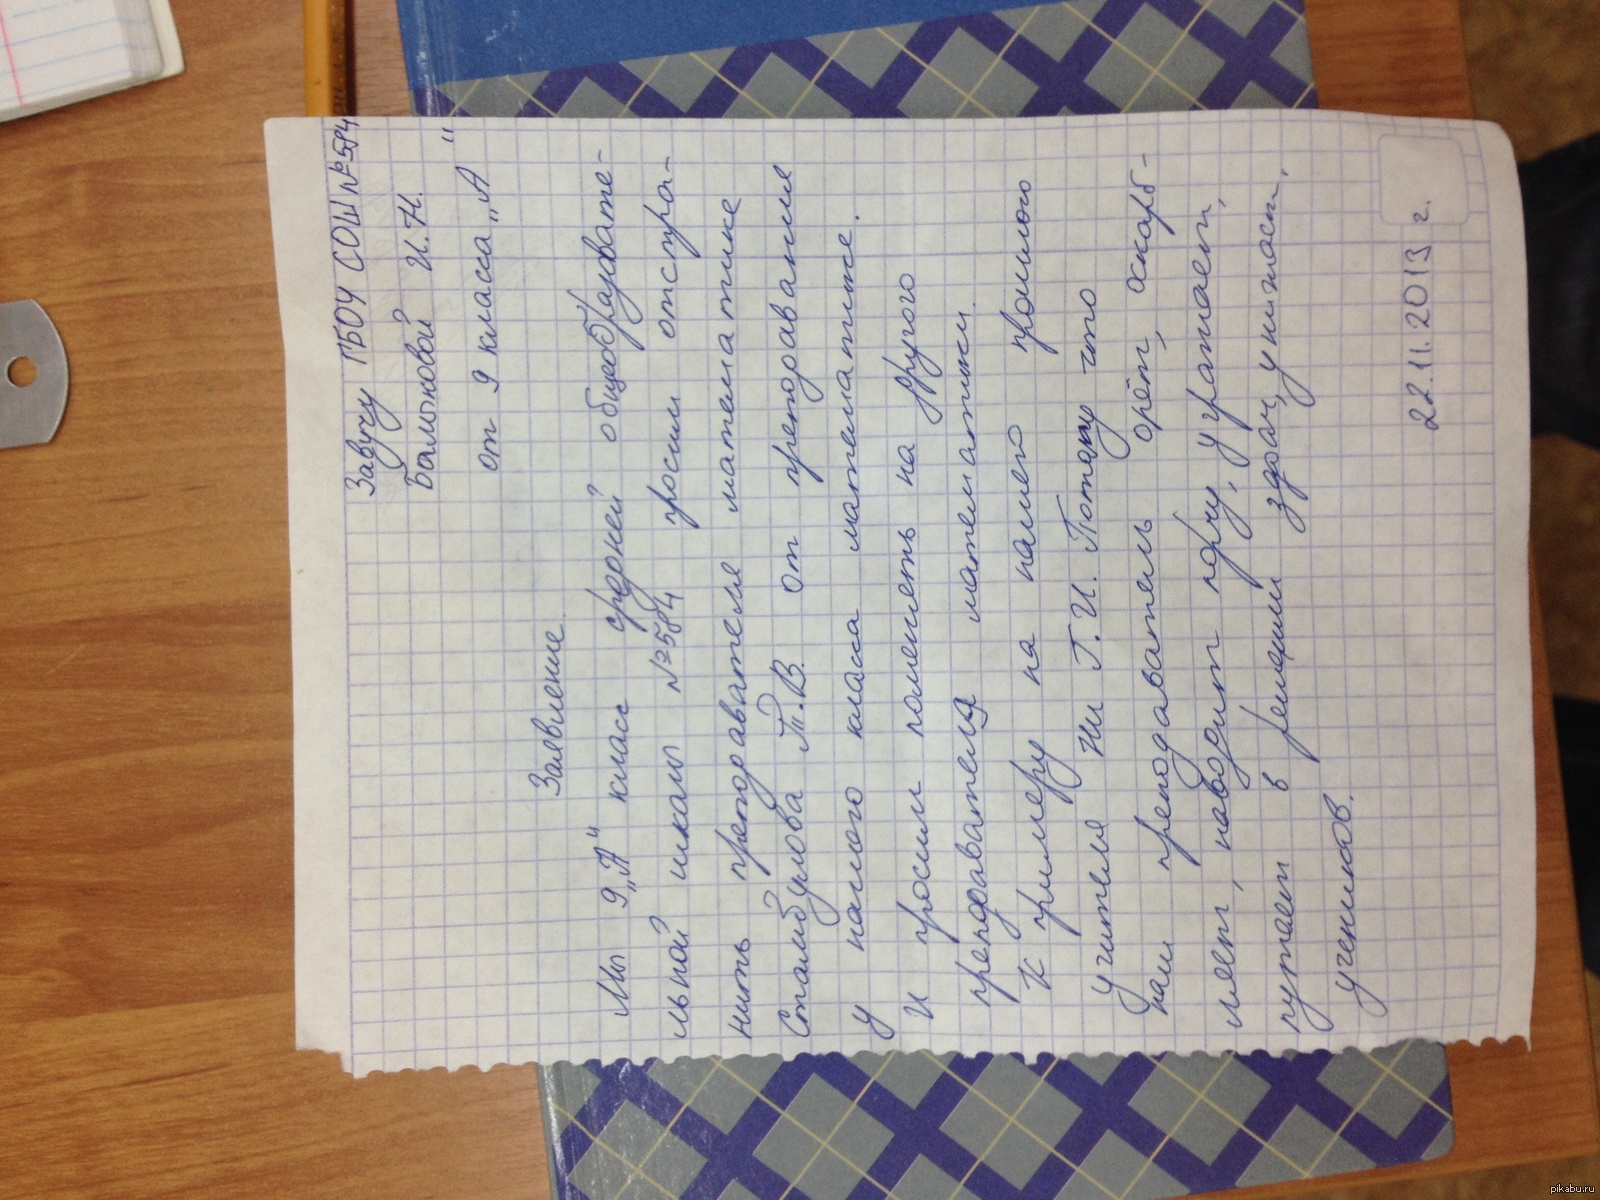 Завучу ГБОУ СОШ №584
Балыковой И.Н.
от 9 класса „А"
Заявление
Мы 9„А" класс средней общеобразовате-
льной школы №584 просим отстра-
нить преподавателя математике
Стамбулова Т.В. от преподавания
у нашего класса математике.
И просим поменять на другого
преподавателя математики.
К примеру на нашего прошлого
учителя Ни Г.И. Потому что
наш преподаватель орёт, оскорб-
ляет, наводит порчу, угрожает,
путает в решении задач, унижает
учеников.
22.11.2013 г.
pikabu.ru